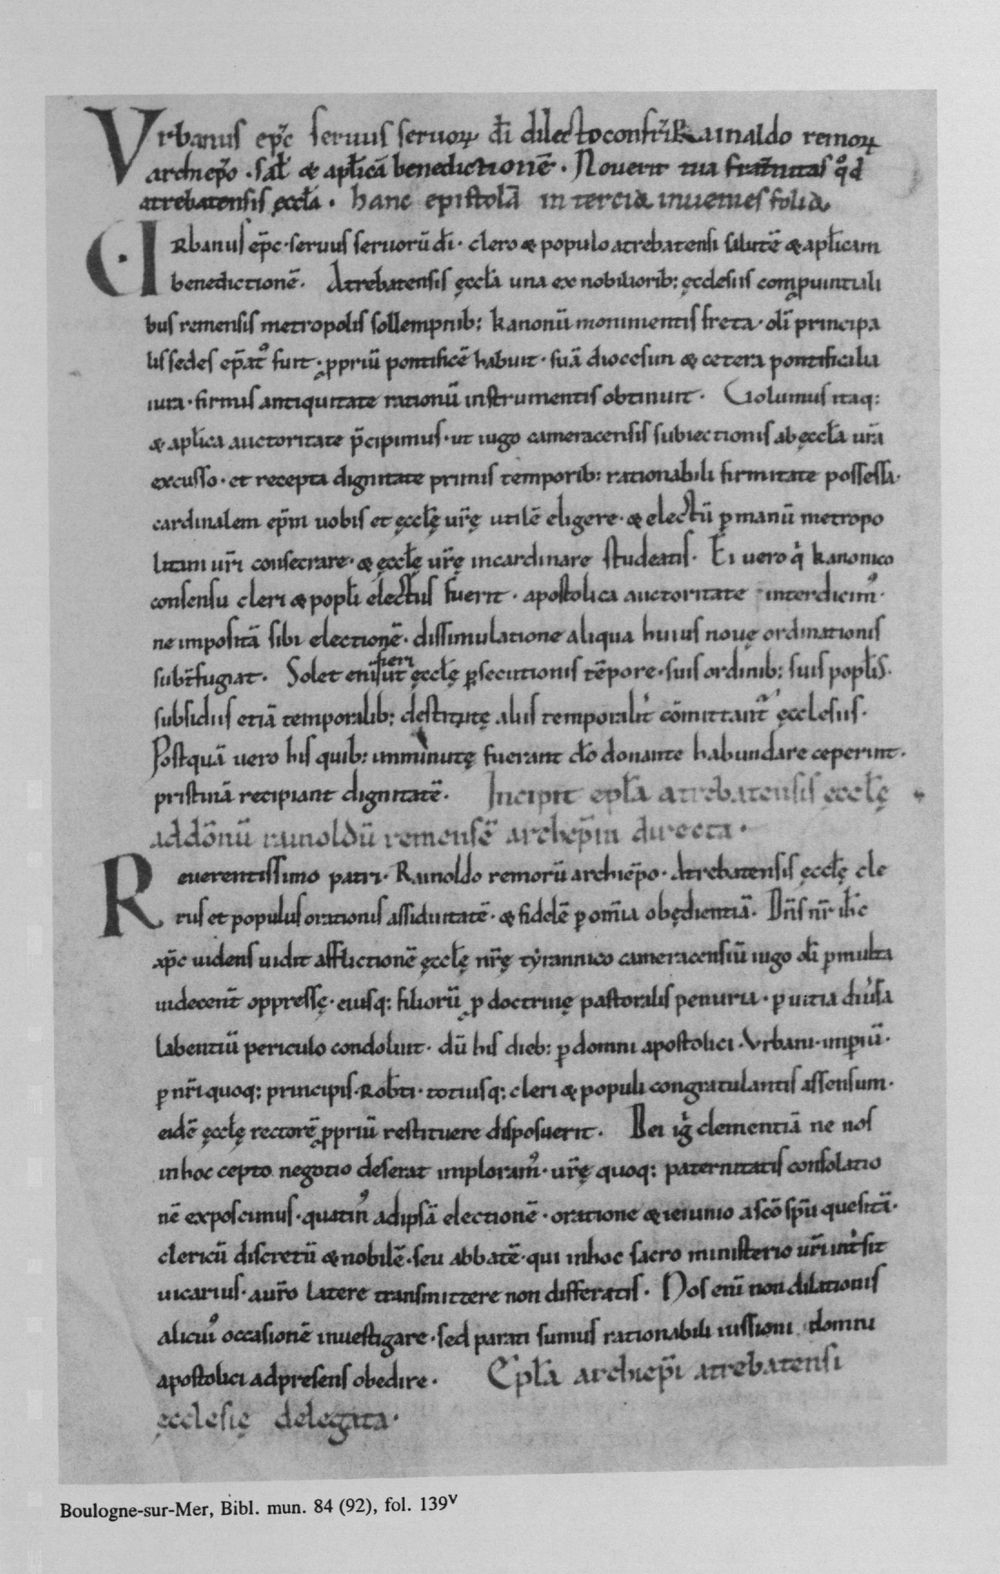 Vrbanus ep̄c seruus seruoꝝ dī dilecto confr̄i Rainaldo remoꝝ
archiep̄o · sal̄ & apl̄icā benedictionē · Nouerit tua frat̄nitas qd̄
atrebatensis ęccl̄a · hanc epistolā in tercia inuenies folia
URbanus ep̄c · seruus seruorū dī · clero & populo atrebatensi salutē & apl̄icam
benedictionē. Atrebatensis ęccl̄a una ex nobiliorib: ęcclesiis comprouintiali
bus remensis metropolis sollempnib: kanonū monimentis freta · olī principa
lis sedes ep̄at᷒ fuit · ꝓpriū pontificē habuit · suā diocesim & cetera pontificalia
iura · firmis antiquitate rationū instrumentis obtinuit · Volumus itaq:
& apl̄ica auctoritate p̄cipimus · ut iugo cameracensis subiectionis ab ęccl̄a ur̄a
excusso · et recepta dignitate primis temporib: rationabili firmitate possessa ·
cardinalem ep̄m uobis et ęccl̄ę ur̄ę utilē eligere · & electū ꝑ manū metropo
litani ur̄i consecrare · & ęccl̄ę ur̄ę incardinare studeatis · Ei uero q̇ kanonico
consensu cleri & popl̄i electus fuerit · apostolica auctoritate interdicim᷒ ·
ne impositā sibi electionę̄ · dissimulatione aliqua huius nouę ordinationis
subt̄fugiat · Solet eni fieri ut ęccl̄ę ꝑsecutionis tēpore · suis ordinib: suis popl̄is ·
subsidiis etiā temporalib: destitutę aliis temporalit̄ cōmittant᷑ ęcclesiis ·
Postquā uero his quib: imminutę fuerant dō donante habundare ceperint ·
pristinā recipiant dignitatē · Incipit epl̄a atrebatensis ęccl̄ę
ad dōnū rainoldū remensē archiep̄m directa ·
Reuerentissimo patri · Rainoldo remorū archiep̄o · Atrebatensis ęccl̄ę cle
rus et populus orationis assiduitatē · & fidelē ꝑ omīa obędientiā · Dn̄s nr̄ ih̄c
xp̄c uidens uidit afflictionē ęccl̄ę nr̄ę tẏrannico cameracensiū iugo olī ꝑ multa
uidecent̄ oppressę · eiusq: filiorū ꝓ doctrinę pastoralis penuria · ꝑ uitia diu̇sa
labentiū periculo condoluit · dū his dieb: ꝑ domni apostolici · Vrbani · impiū̄ ·
ꝑ nr̄i quoq: principis · Rob̄ti · totiusq: cleri & populi congratulantis assensum ·
eidē ęccl̄ę rectorē ꝓpriū restituere disposuerit · Dei igͥ clementiā ne nos
in hoc cepto negotio deserat imploram᷒ · ur̄ę quoq: paternitatis consolatio
nē exposcimus · quatin᷒ ad ipsā electionē · oratione & ieiunio a scō sp̄u quesitā ·
clericū discretū & nobilē · seu abbatē · qui in hoc sacro ministerio ur̄i int̄sit
uicarius · a ur̄o latere transmittere non differatis · Nos enī non dilationis
alicui᷒ occasionē inuestigare · sed parati sumus rationabili iussioni domni
apostolici ad presens obedire · Epl̄a archiep̄i atrebatensi
ęcclesię delegata ·
Boulogne-sur-Mer, Bibl. mun. 84 (92), fol. 139v